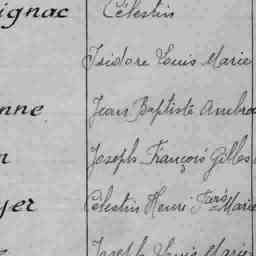 ignac Célestin
Isidore Louis Marie
nne Jean Baptiste Ambro
n Joseph François Gilles
yer Célestin Henri Marie
Joseph Louis Marie